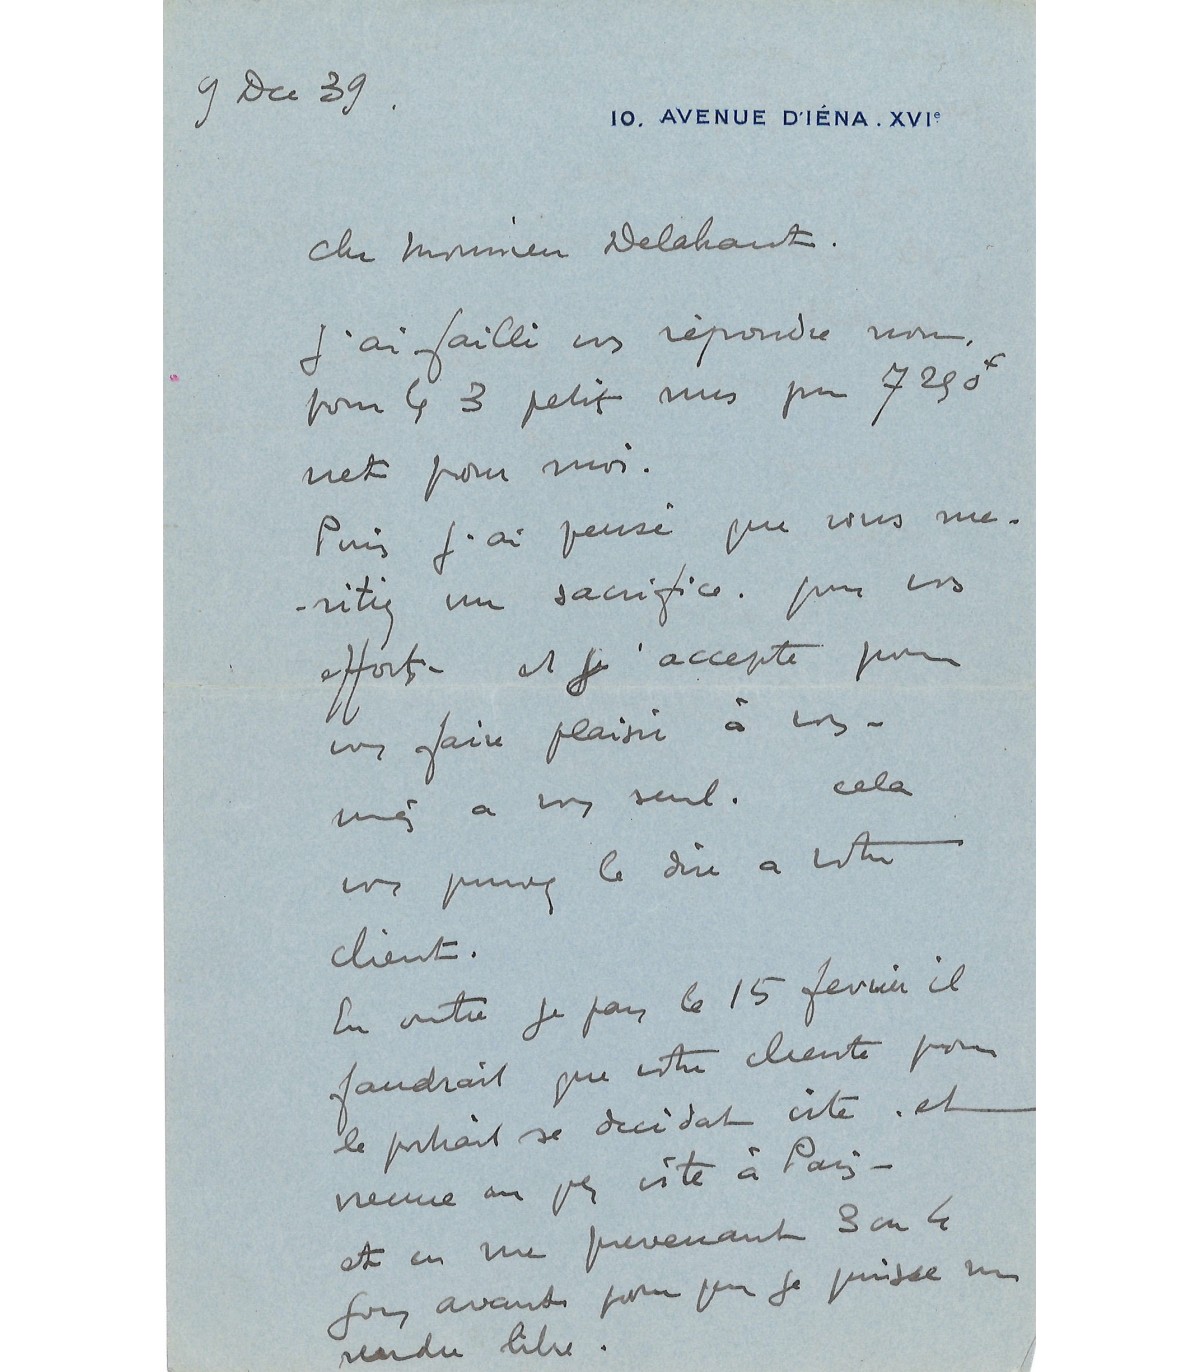 9 Dec 39.
10. AVENUE D'IÉNA. XVIe
Cher Monsieur Delahaut.
J'ai failli vs répondre non.
pour les 3 petits nus pour 7250f
net pour moi.
Puis j'ai pensé que vous me-
-ritiez un sacrifice. pour vos
efforts - et j'accepte pour
vous faire plaisir à vous -
mais a vous seul. cela
vous pouvez le dire a votre
client.
En outre je pars le 15 fevrier il
faudrait que votre cliente pour
le portrait se decidat vite. et
vienne au plus vite à Paris -
et en me prevenant 3 ou 4
jours avant pour que je puisse me
rendre libre.